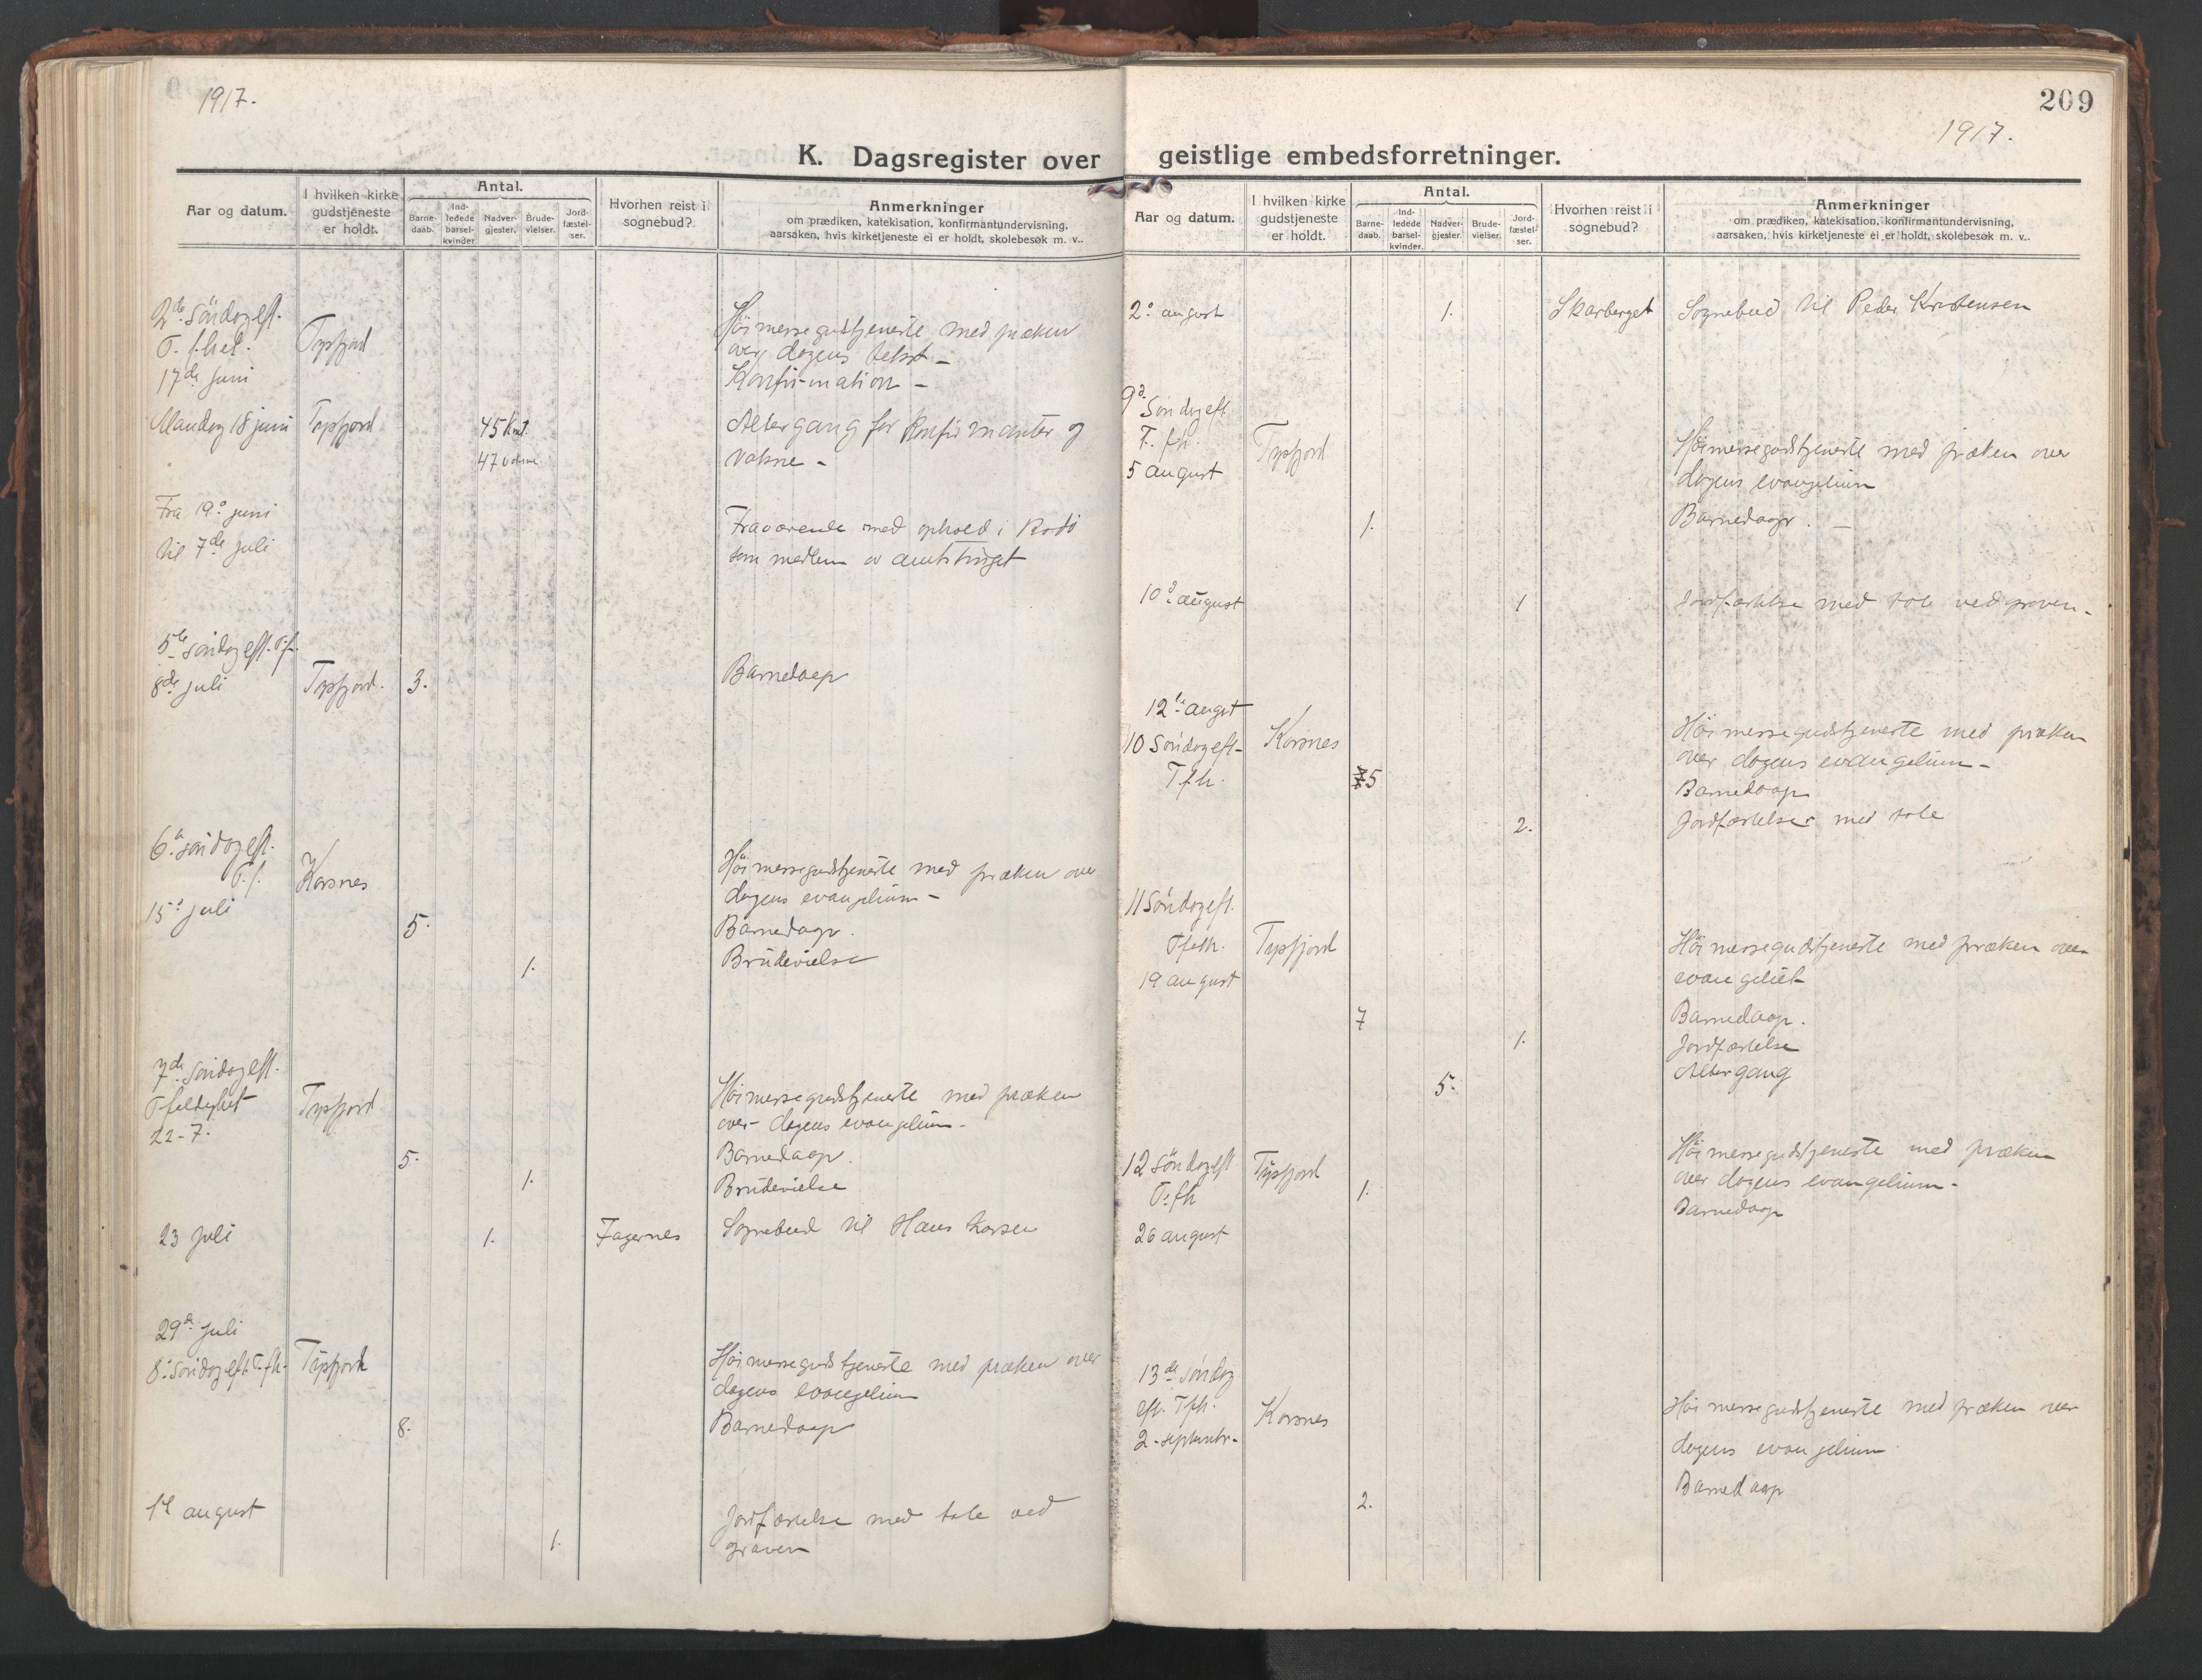 1917.
K. Dagsregister over
Aar og datum.
I hvilken kirke
gudstjeneste
er holdt.
Antal.
Barne-
daab.
Ind-
ledede
barsel-
kvinder.
Nadver-
gjester.
Brude-
vielser.
Jord-
fæstel-
ser.
Hvorhen reist i
sognebud?
Anmerkninger
om prædiken, katekisation, konfirmantundervisning,
aarsaken, hvis kirketjeneste ei er holdt, skolebesøk m. v..
2de Söndag eft.
T. f.het.
17de juni
Tysfjord
Höimessegudstjeneste med præken
over dagens tekst –
Konfirmation –
Mandag 18 juni Tysfjord 45 Knf. Altergang for Konfirmanter og
47 voksne voksne –
Fra 19de juni
til 7de juli
Fraværende med ophold i Bodö
som medlem av amtstinget
5te söndag eft. T.f.
8de juli Tysfjord. 3. Barnedaap
6te söndag eft.
T.f.
15de juli
Korsnes
Höimessegudstjeneste med præken over
dagens evangelium –
5. Barnedaap.
1. Brudevielse
7de Söndag eft.
Tfoldighet
22-7.
Tysfjord
Höimessegudstjeneste med præken
over dagens evangelium –
5. Barnedaap.
1. Brudevielse
23 juli 1. Fagernes Sognebud til Hans Larsen
29de juli
8de Söndag eft. T.fh. Tysfjord
Höimessegudstjeneste med præken over
dagens evangelium
8. Barnedaap
1ste august
1. Jordfæstelse med tale ved
graven
209
1917.
geistlige embedsforretninger.
Aar og datum.
I hvilken kirke
gudstjeneste
er holdt.
Antal.
Barne-
daab.
Ind-
ledede
barsel-
kvinder.
Nadver-
gjester.
Brude-
vielser.
Jord-
fæstel-
ser.
Hvorhen reist i
sognebud?
Anmerkninger
om prædiken, katekisation, konfirmantundervisning,
aarsaken, hvis kirketjeneste ei er holdt, skolebesøk m. v..
2de august 1. Skarberget Sognebud til Peder Kristensen
9de Söndag eft.
T. fh.
5 august
Tysfjord
Höimessegudstjeneste med præken over
dagens evangelium
1. Barnedaap. –
10de august 1 Jordfæstelse med tale ved graven –
12te augst
10 Söndag eft–
T.fh.
Korsnes
Höimessegudstjeneste med præken
over dagens evangelium –
5 Barnedaap
2. Jordfæstelser med tale
11 Söndag eft.
Tfoh.
19 august
Tysfjord
Höimessegudstjeneste med præken over
evangeliet
7 Barnedaap.
1. Jordfæstelse
5. Altergang
12 Söndag eft
T. fh
26 august
Tysfjord
Höimessegudstjeneste med præken
over dagens evangelium –
1. Barnedaap
13de Söndag
eft. Tfh.
2– septembr–
Korsnes
Höimessegudstjeneste med præken over
dagens evangelium
2. Barnedaap